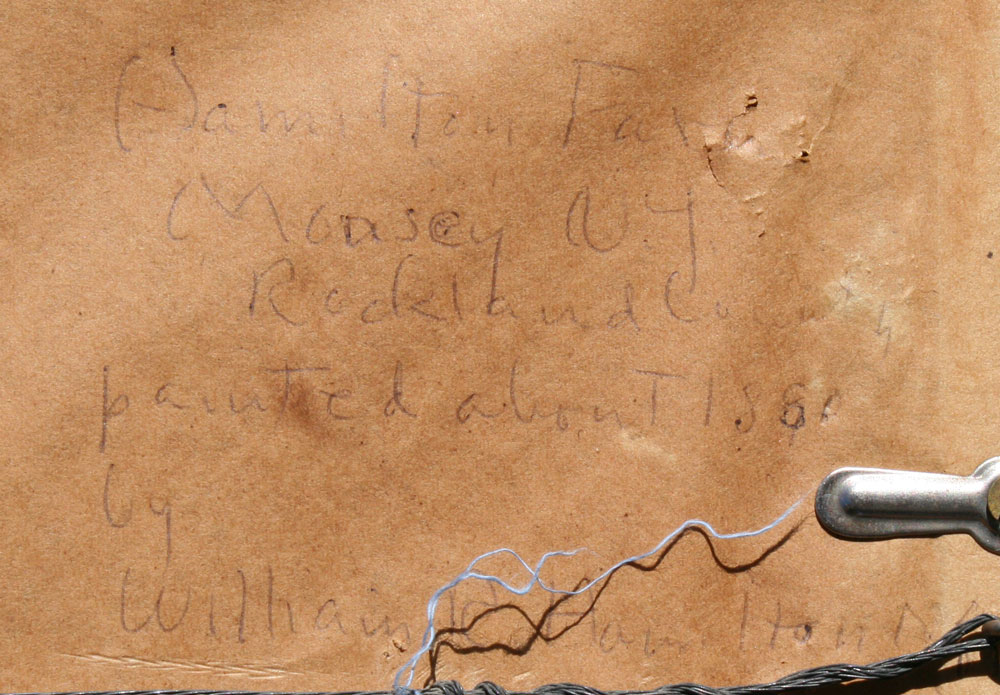 Hamilton Farm
Monsey N.Y.
Rockland County
painted about
by
William R. Hamilton